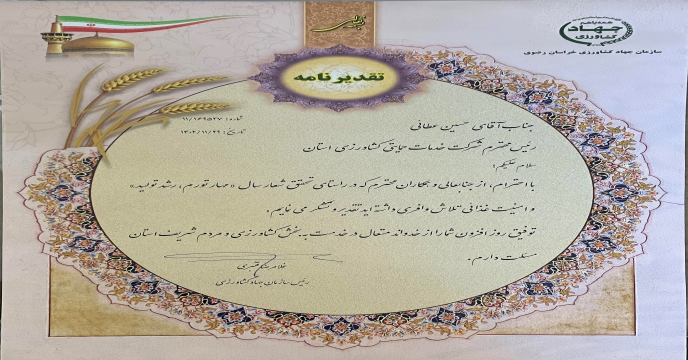 همه با هم
جهاد
کشاورزی
سازمان جهاد کشاورزی خراسان رضوی
تقدیر نامه
شماره: ۱۱/۱۶۹۵۲۷
تاریخ: ۱۴۰۲/۱۱/۲۹
جناب آقای حسین عطائی
رئیس محترم شرکت خدمات حمایتی کشاورزی استان
سلام علیکم؛
با احترام، از جنابعالی و همکاران محترم که در راستای تحقق شعار سال «مهار تورم، رشد تولید»
و امنیت غذائی تلاش وافری داشته اید تقدیر و تشکر می نمایم.
توفیق روز افزون شما را از خداوند متعال در خدمت به بخش کشاورزی و مردم شریف استان
مسئلت دارم.
رئیس سازمان جهاد کشاورزی